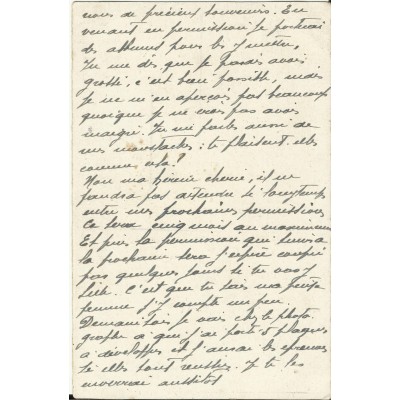 nous de précieux souvenirs. En
venant en permission je porterai
des albums pour les y mettre,
Tu me dis que je parais avoir
grossi, c'est bien possible, mais
je ne m'en aperçois pas beaucoup
quoique je ne crois pas avoir
maigri. Tu me parles aussi de
mes moustaches ; te plaisent-elles
comme cela ?
Non ma chérie, il ne
faudra pas attendre si longtemps
entre mes prochaines permissions
Ce sera cinq mois au maximum
Et puis la permission qui suivra
la prochaine sera j'espère
pas quelques jours si tu vas
C'est que tu sais ma petite
femme j'y compte un peu.
Demain soir je vais chez le photo-
graphe à qui j'ai porté plaques
à développer et j'aurai les épreuves
si elles sont réussies. Je te les
enverrai aussitôt